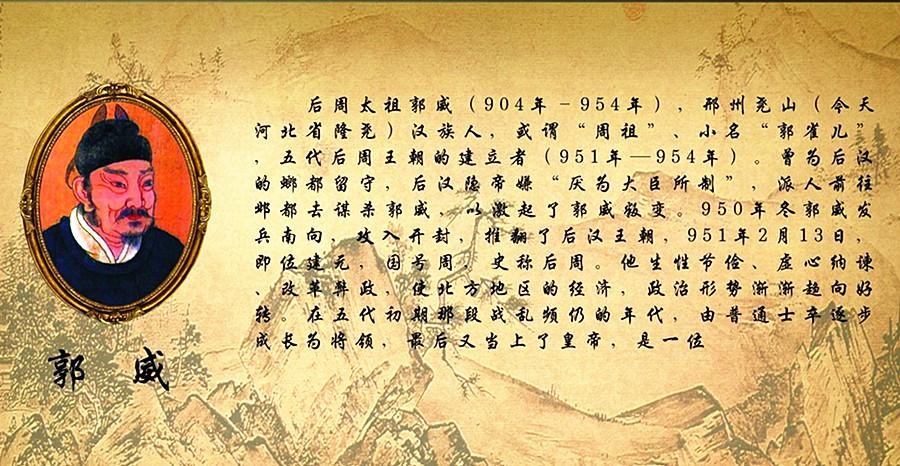 后周太祖郭威（904年－954年），邢州尧山（今天
河北省隆尧）汉族人，或谓“周祖”、小名“郭雀儿”
，五代后周王朝的建立者（951年—954年）。曾为后汉
的邺都留守，后汉隐帝嫌“厌为大臣所制”，派人前往
邺都去谋杀郭威，以激起了郭威叛变。950年冬郭威发
兵南向，攻入开封，推翻了后汉王朝，951年2月13日，
即位建元，国号周，史称后周。他生性节俭、虚心纳谏
、改革弊政，使北方地区的经济，政治形势渐渐趋向好
转。在五代初期那段战乱频仍的年代，由普通士卒逐步
成长为将领，最后又当上了皇帝，是一位
郭 威